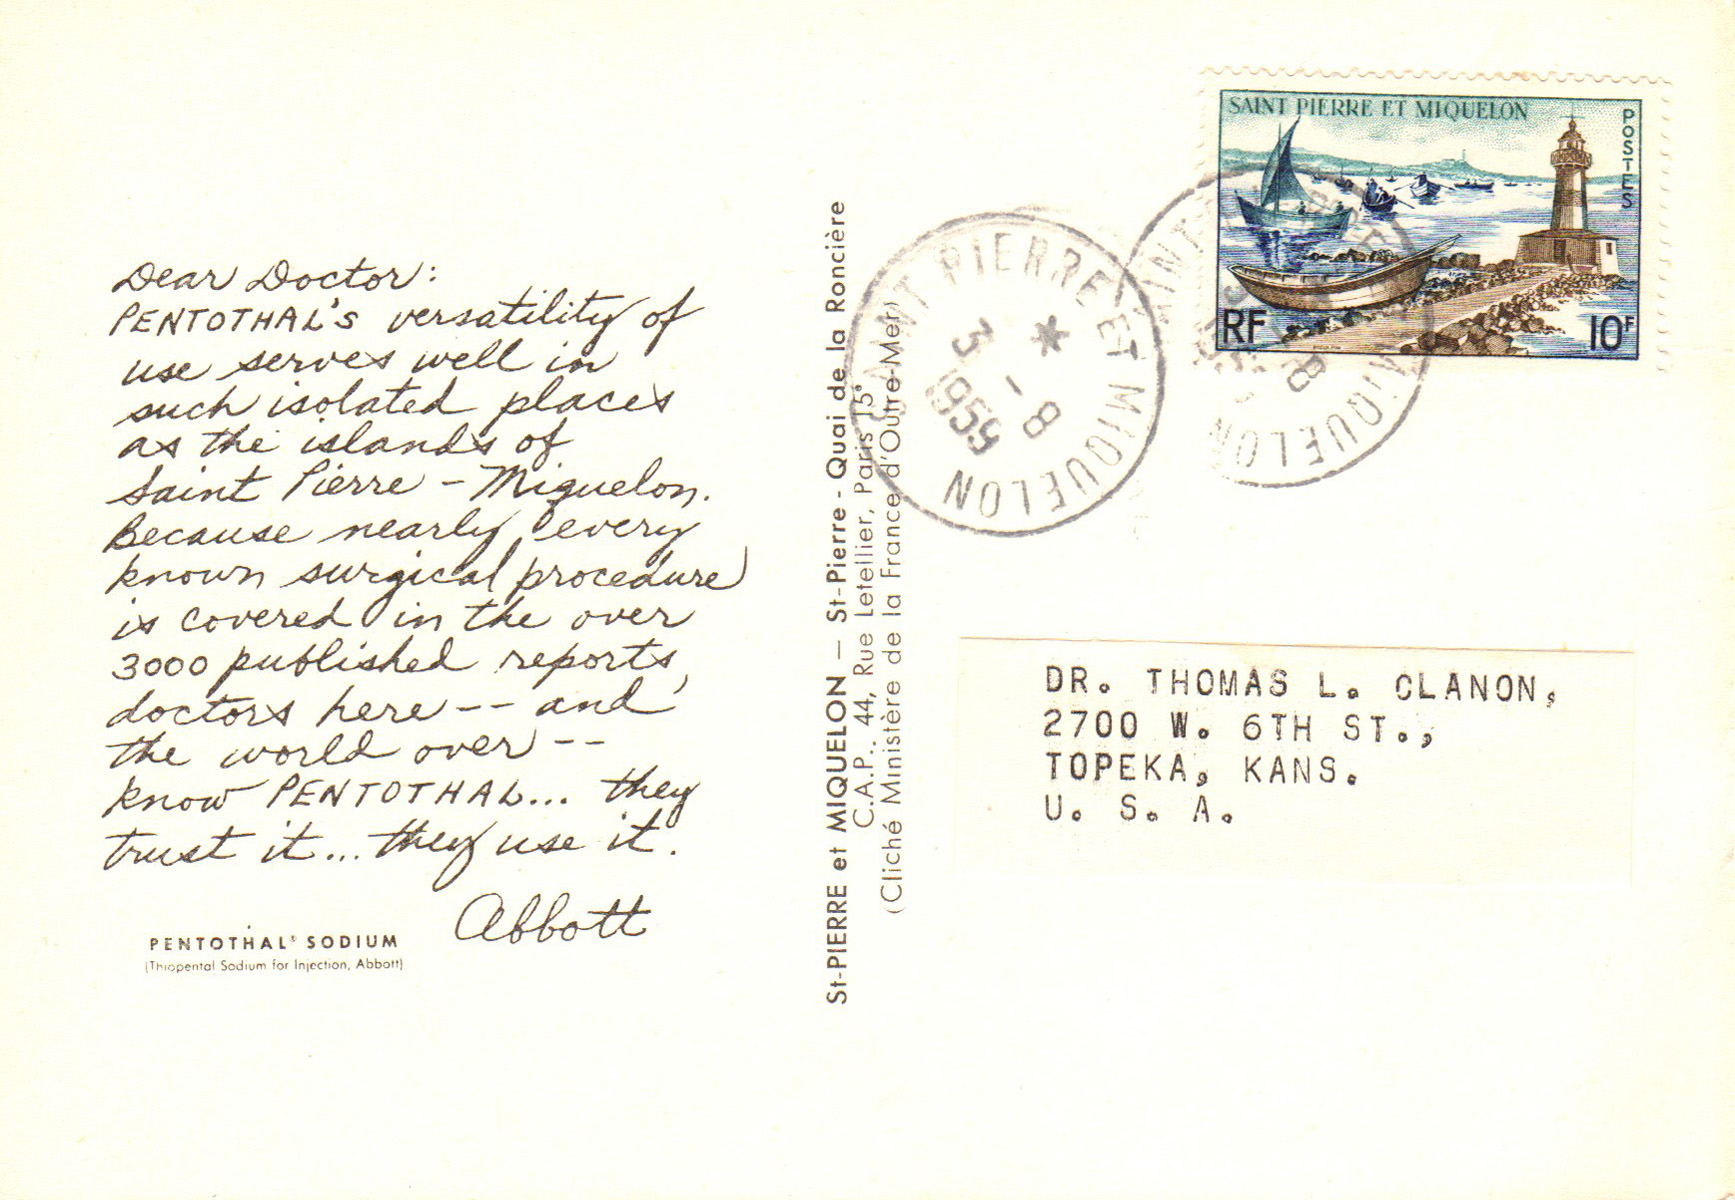 Dear Doctor:
PENTOTHAL'S versatility of
use serves well in
such isolated places
as the islands of
Saint Pierre - Miquelon.
Because nearly every
known surgical procedure
is covered in the over
3000 published reports,
doctors here -- and
the world over --
know PENTOTHAL... they
trust it... they use it.
Abbott
PENTOTHAL® SODIUM
(Thiopental Sodium for Injection, Abbott)
St-PIERRE et MIQUELON — St-Pierre - Quai de la Roncière
C.A.P.. 44, Rue Letellier, Paris 15°
(Cliché Ministère de la France d'Outre-Mer)
SAINT PIERRE ET MIQUELON
*
3 - 8
1959
SAINT PIERRE ET MIQUELON
POSTES
RF
10F
DR. THOMAS L. CLANON,
2700 W. 6TH ST.,
TOPEKA, KANS.
U. S. A.